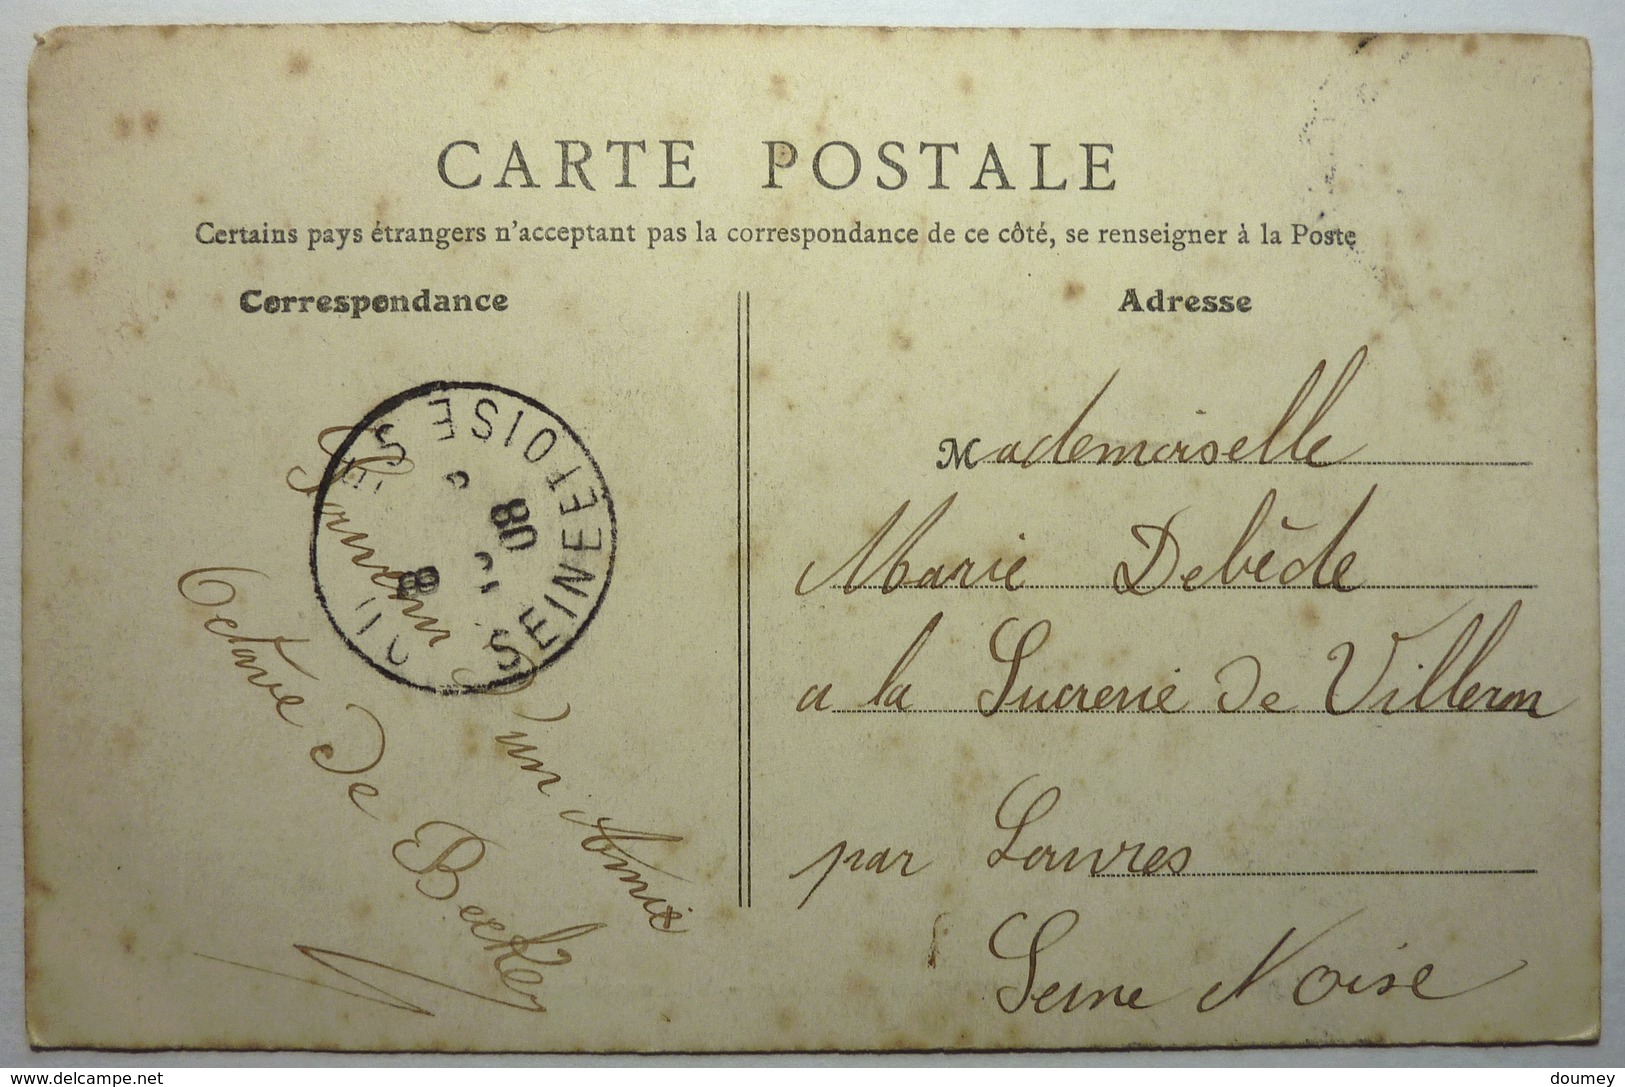 CARTE POSTALE
Certains pays étrangers n'acceptant pas la correspondance de ce côté, se renseigner à la Poste
Correspondance
Adresse
SEINE ET OISE
8
08
Souvenir d'un Amie
Octave De Becker
Mademoiselle
Marie Debède
a la Sucrerie de Villeron
par Louvres
Seine Noise
www.delcampe.net
doumey